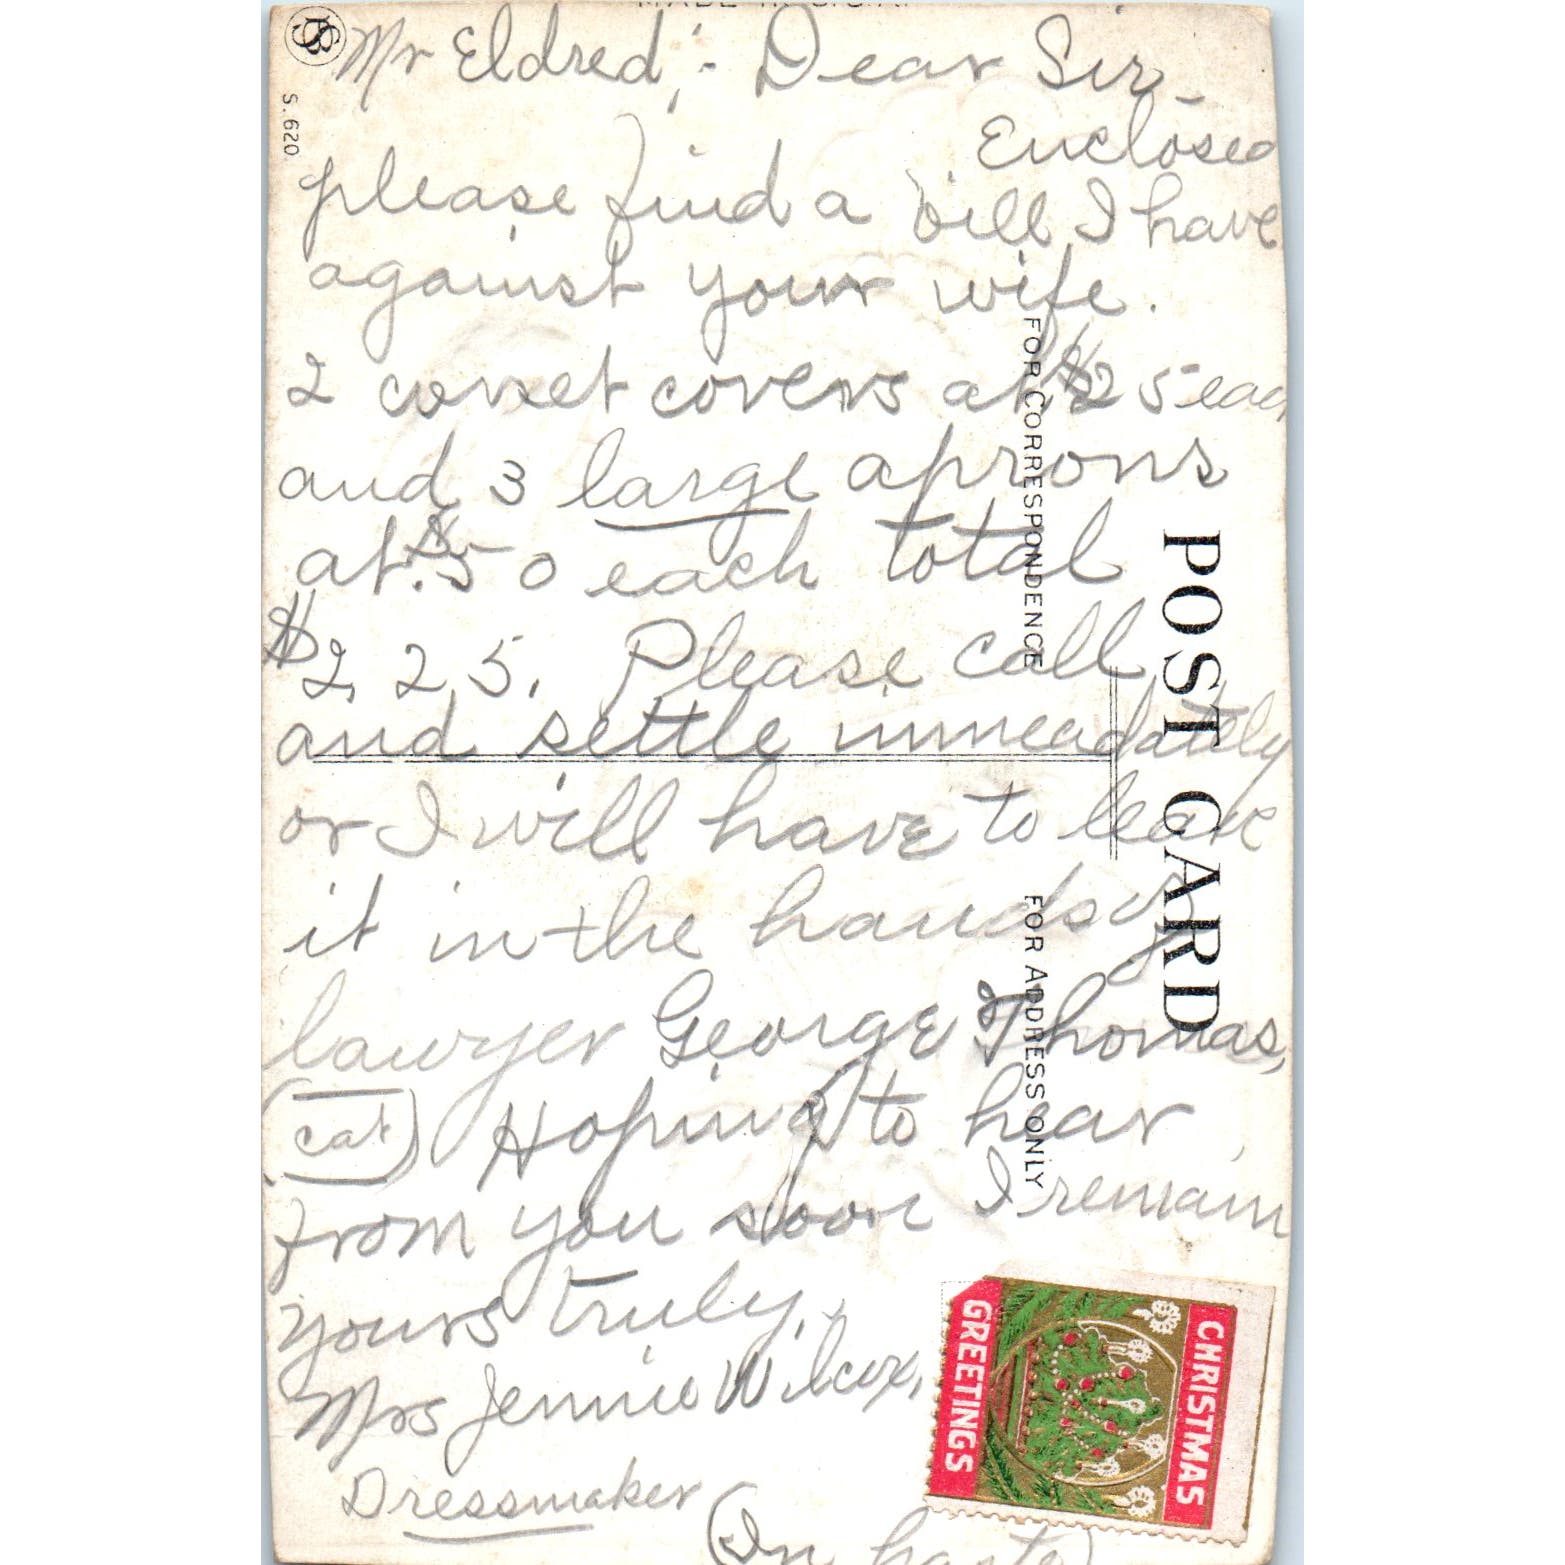 Mr Eldred,:- Dear Sir,-
Enclosed
please find a bill I have
against your wife.
2 corset covers at $
and 3 large aprons
at $.50 each total
$2.25. Please call
and settle immeadately
or I will have to leave
it in the hands of
lawyer George Thomas,
(cat) Hoping to hear
from you soon I remain
yours truly,
Mrs Jennie Wilcox,
Dressmaker
(In haste)
S. 620
POST CARD
FOR CORRESPONDENCE
FOR ADDRESS ONLY
CHRISTMAS
GREETINGS